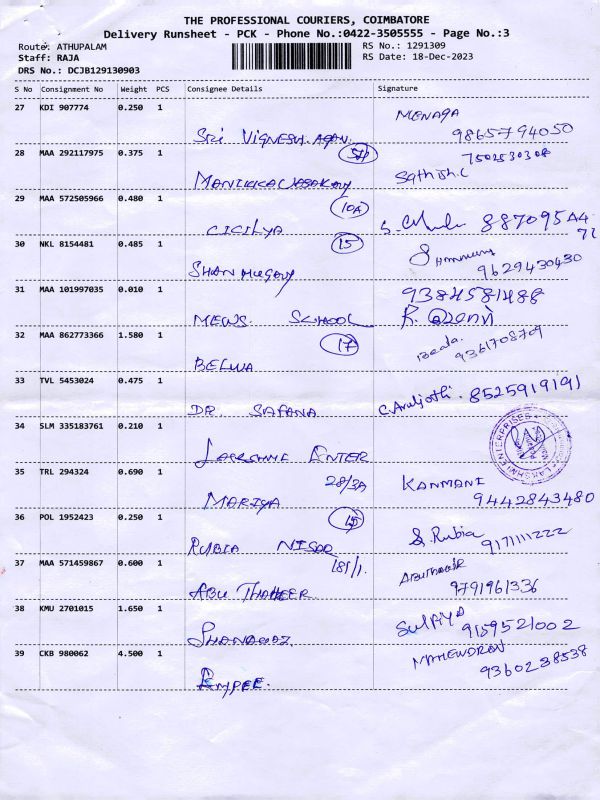 THE PROFESSIONAL COURIERS, COIMBATORE
Delivery Runsheet - PCK - Phone No.:0422-3505555 - Page No.:3
Route: ATHUPALAM
RS No.: 1291309
Staff: RAJA
RS Date: 18-Dec-2023
DRS No.: DCJB129130903
S No Consignment No Weight PCS Consignee Details Signature
27 KDI 907774 0.250 1
MENAGA
SRI VIGNESH. AGAN. 9865794050
28 MAA 292117975 0.375 1
7502530308
Sathish.C
29 MAA 572505966 0.480 1
10A
CICILYA
30 NKL 8154481 0.485 1
15
SHANMUGAM 9629430430
31 MAA 101997035 0.010 1 9384581488
MEWS. SCHOOL R.
32 MAA 862773366 1.580 1
17
9361708709
BELWA
33 TVL 5453024 0.475 1
C. Aruljothi. 8525919191
DR. SAFANA
34 SLM 335183761 0.210 1
LAKSHMI ENTERPRISES
LAKSHMI ENTER
35 TRL 294324 0.690 1 28/3A KANMANI
MARIYA 9442843480
36 POL 1952423 0.250 1
15
S. Rubia 9171111222
RUBIA NISOO
37 MAA 571459867 0.600 1 181/1.
ABU THAHEER. 9791961336
38 KMU 2701015 1.650 1
Sulfiya 9159521002
SHANAWAZ
39 CKB 980062 4.500 1
MAHENDRAN 9360238538
AMPEE.